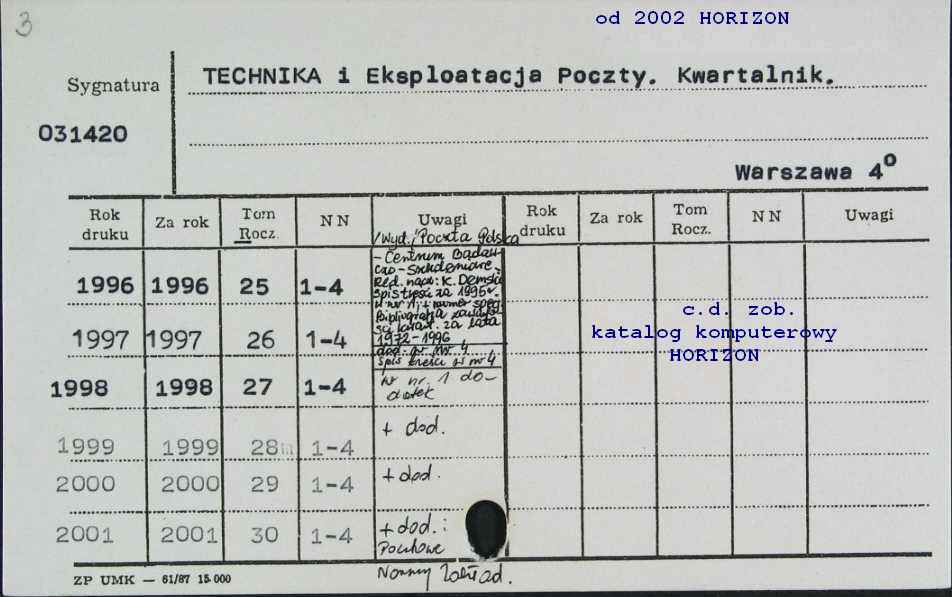 3
od 2002 HORIZON
Sygnatura
TECHNIKA i Eksploatacja Poczty. Kwartalnik.
031420
Warszawa 4º
Rok druku Za rok Tom Rocz. NN Uwagi Rok druku Za rok Tom Rocz. NN Uwagi
/Wyd./ Poczta Polska
- Centrum Badaw
czo - Szkoleniowe.
Red. nacz: K. Demski
1996 1996 25 1-4 Spis treści za 1995 r.
w nr 1; + numer spec.
Bibliografia
za lata
1997 1997 26 1-4 1972-1996
dod. w nr 4
Spis treści w nr 4
c.d. zob.
katalog komputerowy
HORIZON
1998 1998 27 1-4 w nr. 1 do-
datek
1999 1999 28 1-4 + dod.
2000 2000 29 1-4 + dod.
2001 2001 30 1-4 + dod.:
Pocztowe
Normy Zakład.
ZP UMK — 61/87 15.000